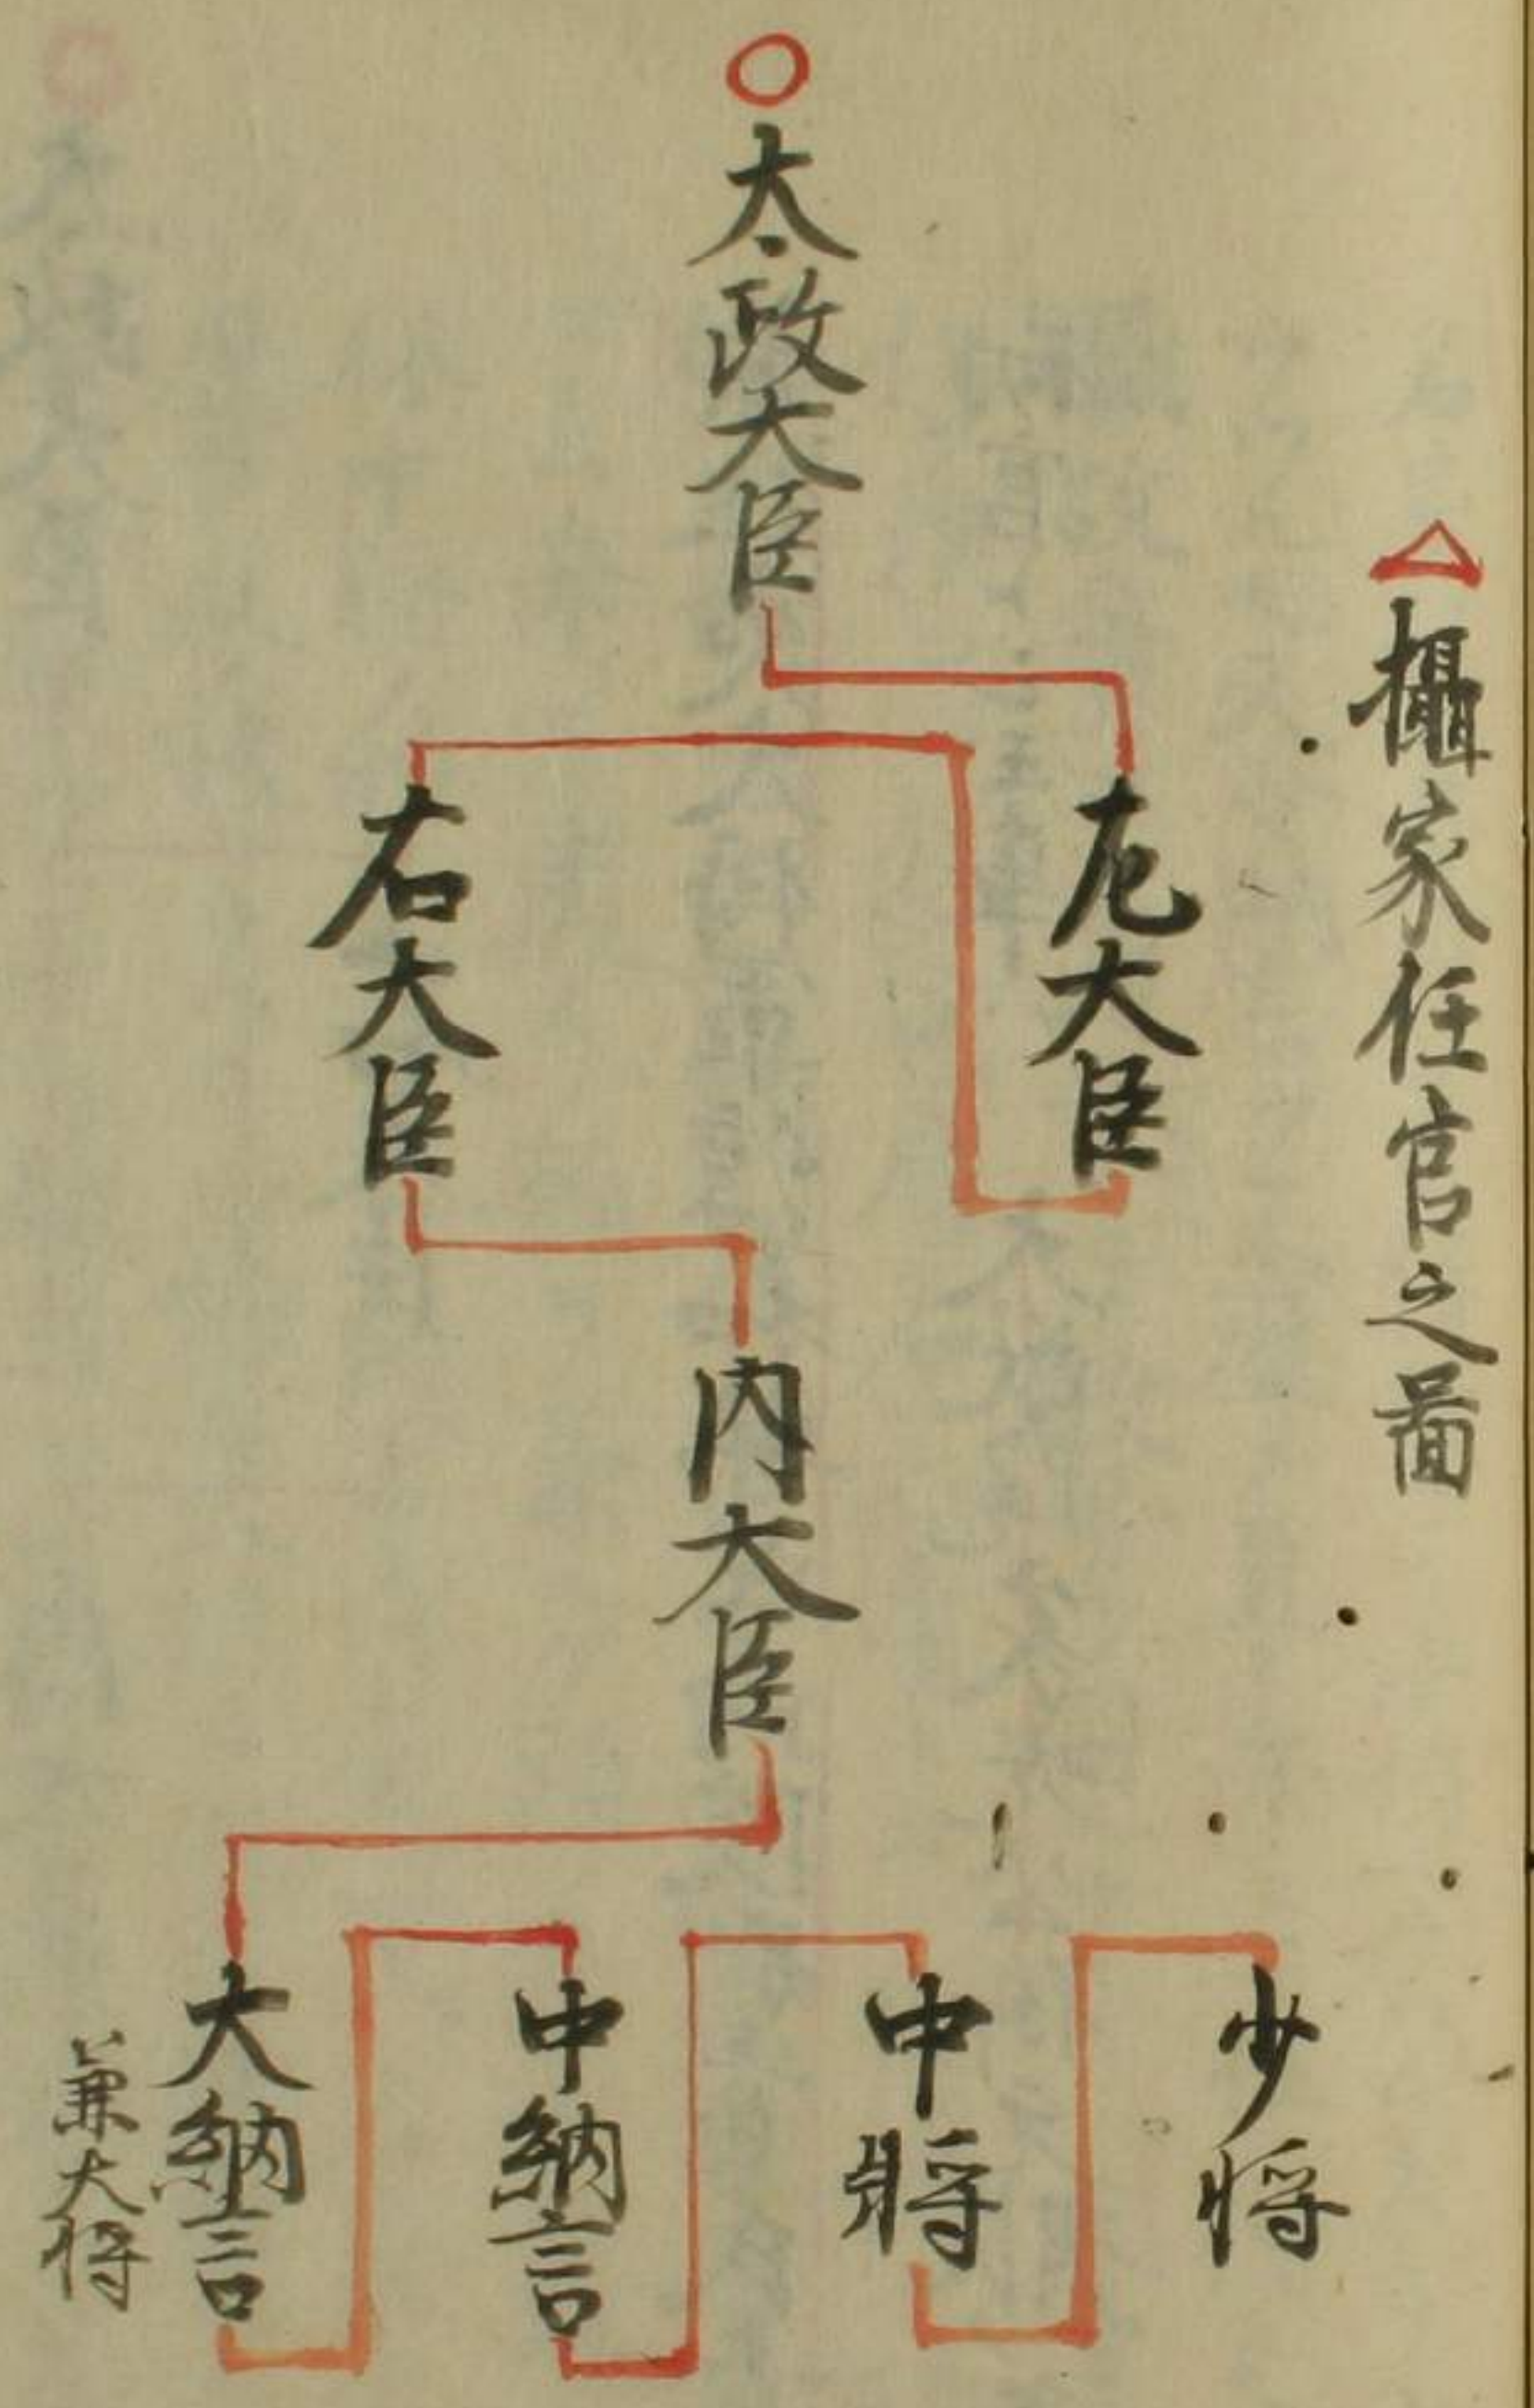 △攝家任官之啚
○太政大臣
左大臣
右大臣
内大臣
少将
中将
中納言
大納言
兼大将